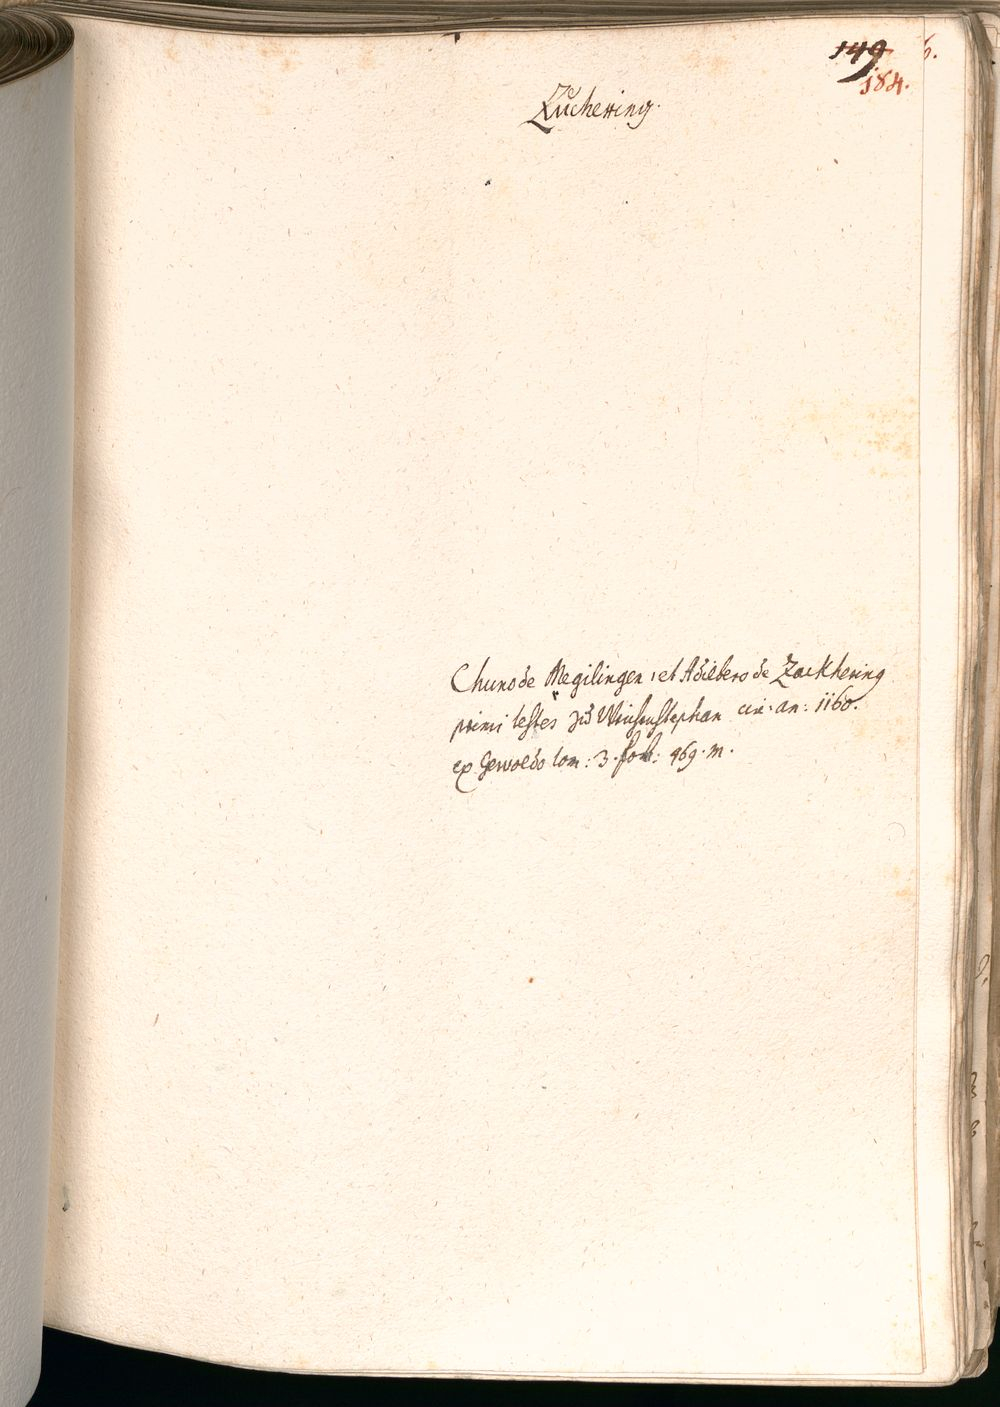 149
184.
Zuchering.
Chuno de Megilingen, et Adilbero de Zuckhering
primi testes zů Weihenstephan cir: an: 1160.
ex Gewoldo tom: 3. fol: 469. m.